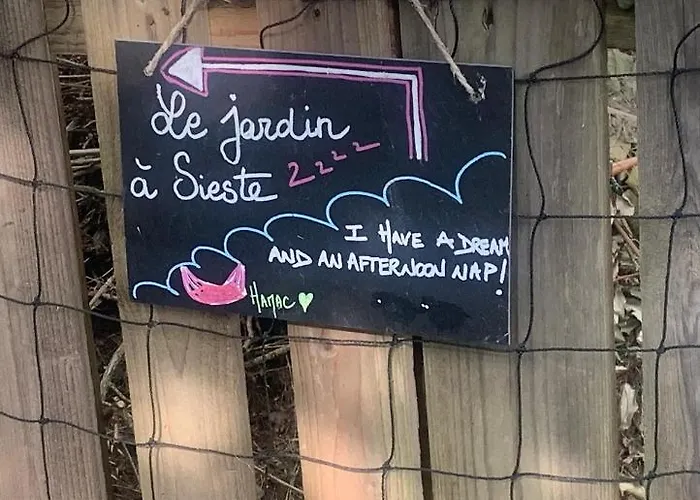 Le jardin
à Sieste zzzz
I HAVE A DREAM
AND AN AFTERNOON NAP!
HAMAC